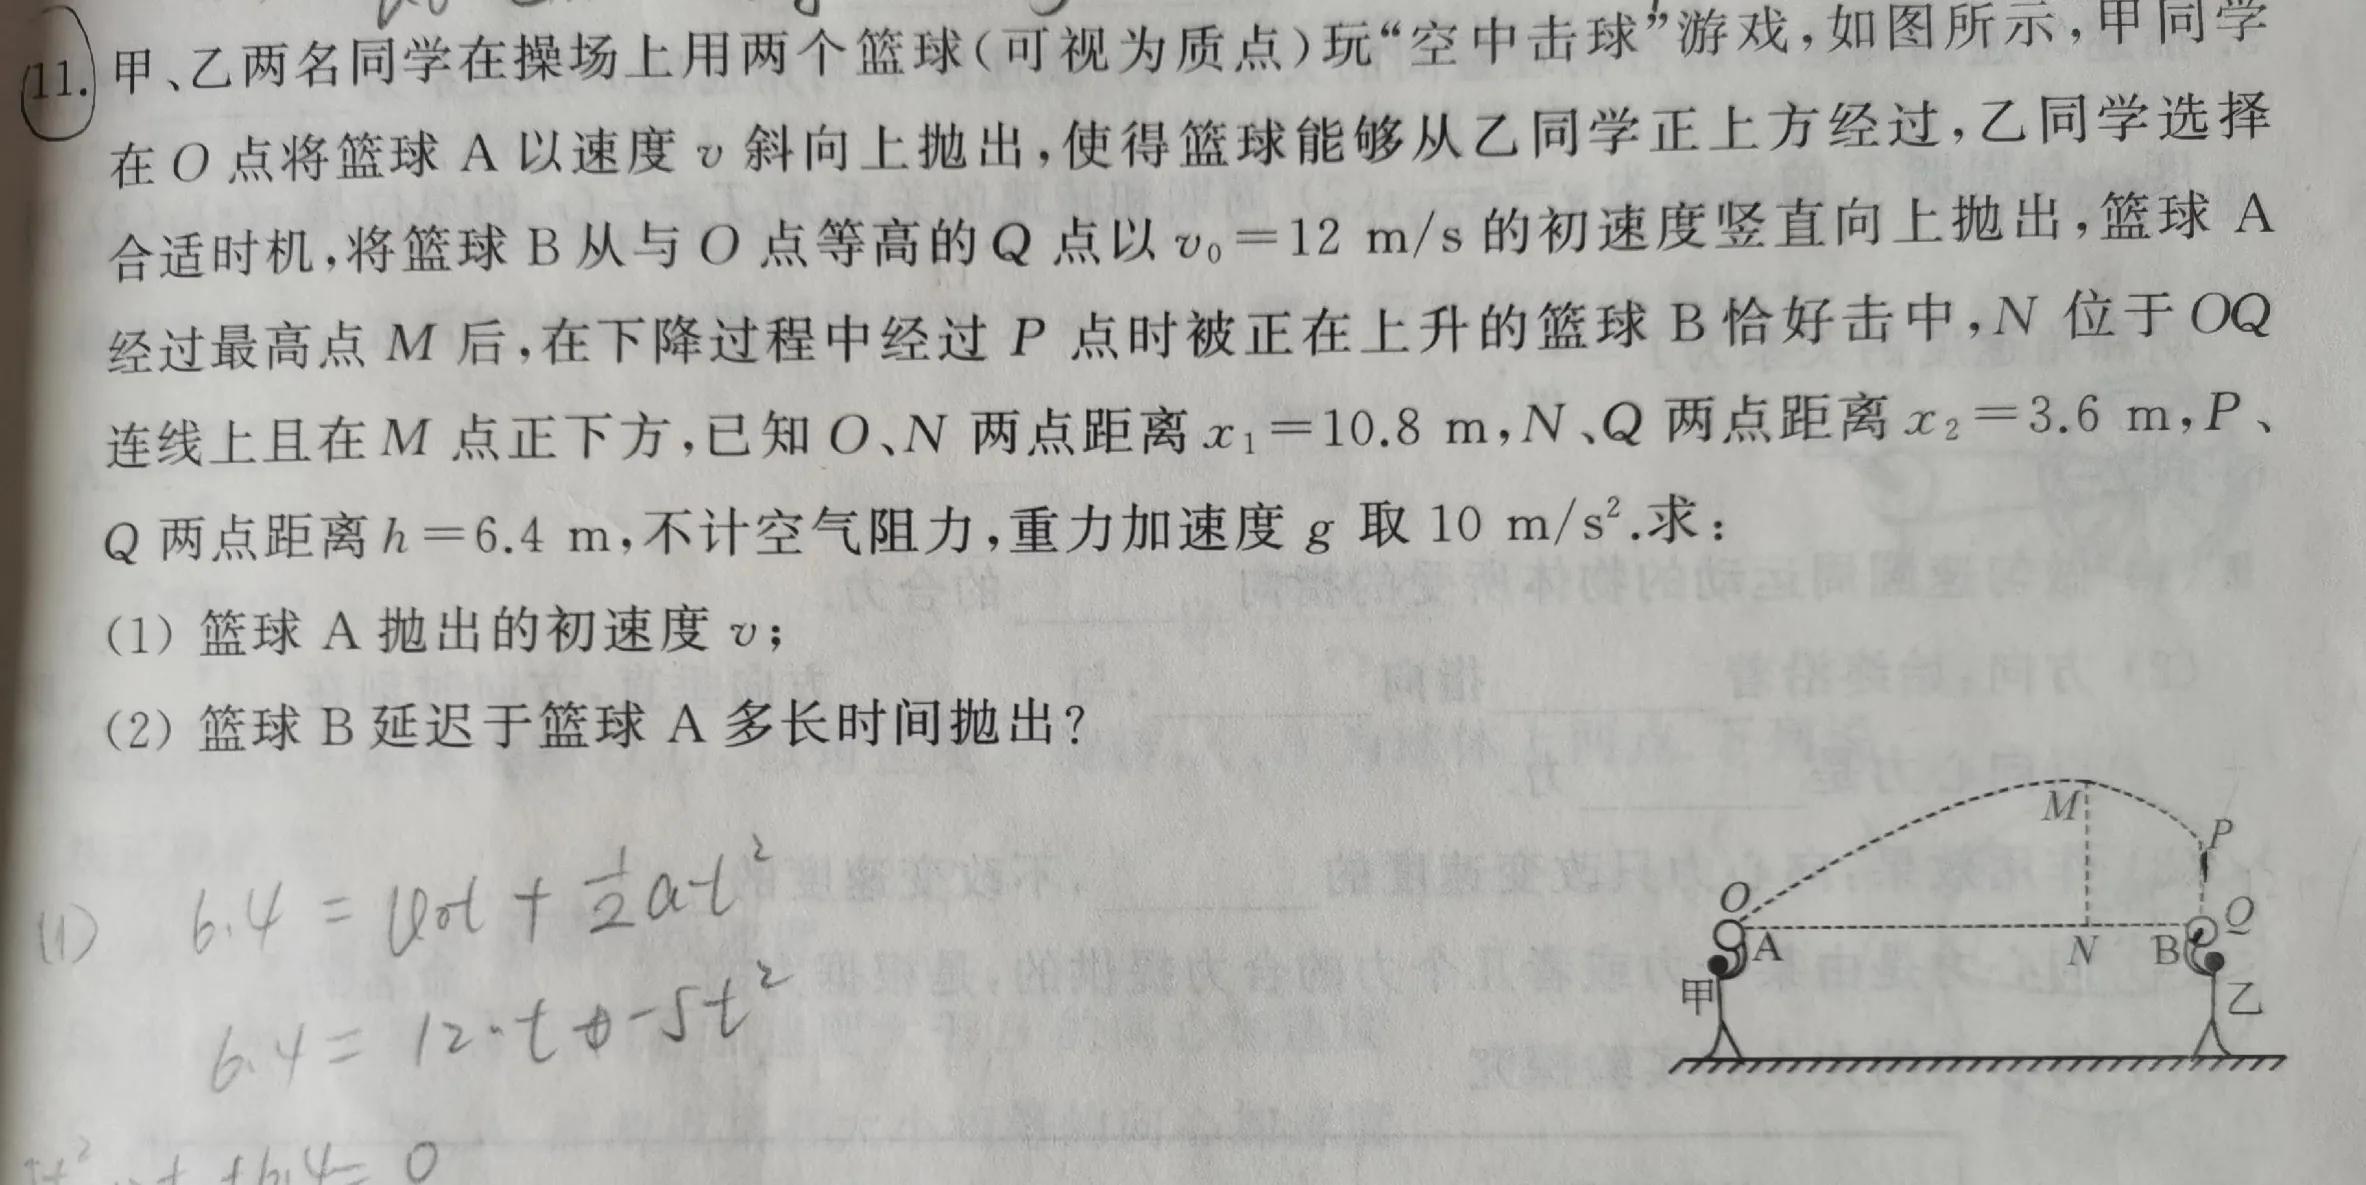 11. 甲、乙两名同学在操场上用两个篮球(可视为质点)玩“空中击球”游戏,如图所示,甲同学
在 O 点将篮球 A 以速度 v 斜向上抛出,使得篮球能够从乙同学正上方经过,乙同学选择
合适时机,将篮球 B 从与 O 点等高的 Q 点以 v₀=12 m/s 的初速度竖直向上抛出,篮球 A
经过最高点 M 后,在下降过程中经过 P 点时被正在上升的篮球 B 恰好击中,N 位于 OQ
连线上且在 M 点正下方,已知 O、N 两点距离 x₁=10.8 m,N、Q 两点距离 x₂=3.6 m,P、
Q 两点距离 h=6.4 m,不计空气阻力,重力加速度 g 取 10 m/s².求:
(1) 篮球 A 抛出的初速度 v;
(2) 篮球 B 延迟于篮球 A 多长时间抛出?
M
P
O
Q
A
N
B
甲
乙
(1) 6.4 = v₀t + ½at²
6.4 = 12·t -5t²
+6.4= 0